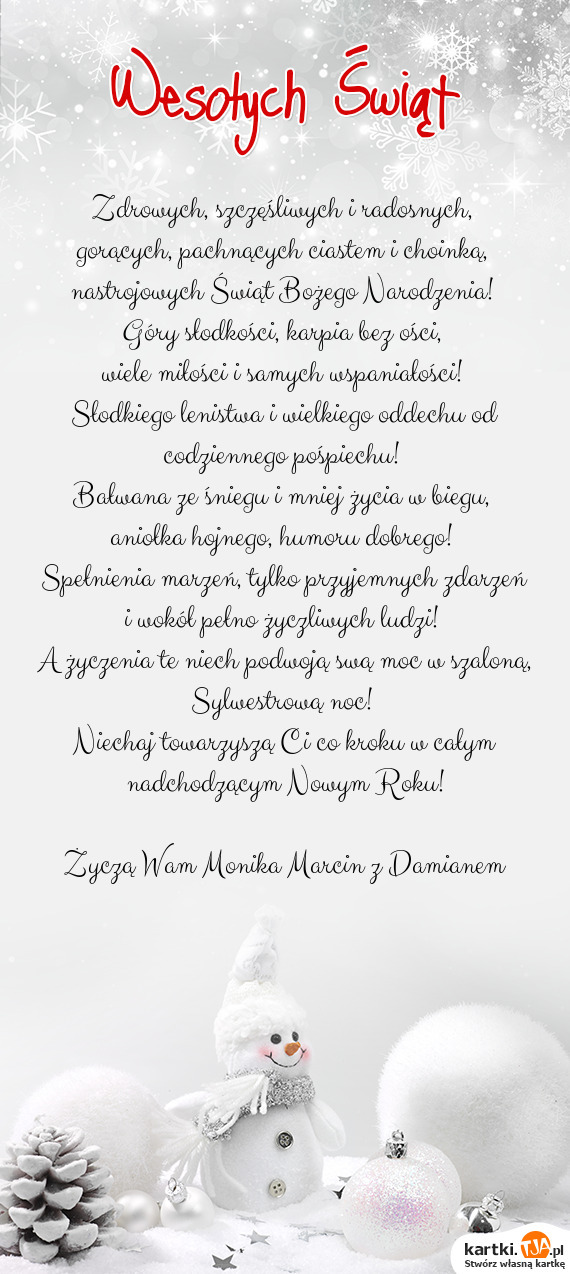 Wesołych Świąt
Zdrowych, szczęśliwych i radosnych,
gorących, pachnących ciastem i choinką,
nastrojowych Świąt Bożego Narodzenia!
Góry słodkości, karpia bez ości,
wiele miłości i samych wspaniałości!
Słodkiego lenistwa i wielkiego oddechu od
codziennego pośpiechu!
Bałwana ze śniegu i mniej życia w biegu,
aniołka hojnego, humoru dobrego!
Spełnienia marzeń, tylko przyjemnych zdarzeń
i wokół pełno życzliwych ludzi!
A życzenia te niech podwoją swą moc w szaloną,
Sylwestrową noc!
Niechaj towarzyszą Ci co kroku w całym
nadchodzącym Nowym Roku!
Życzą Wam Monika Marcin z Damianem
kartki.TJA.pl
Stwórz własną kartkę